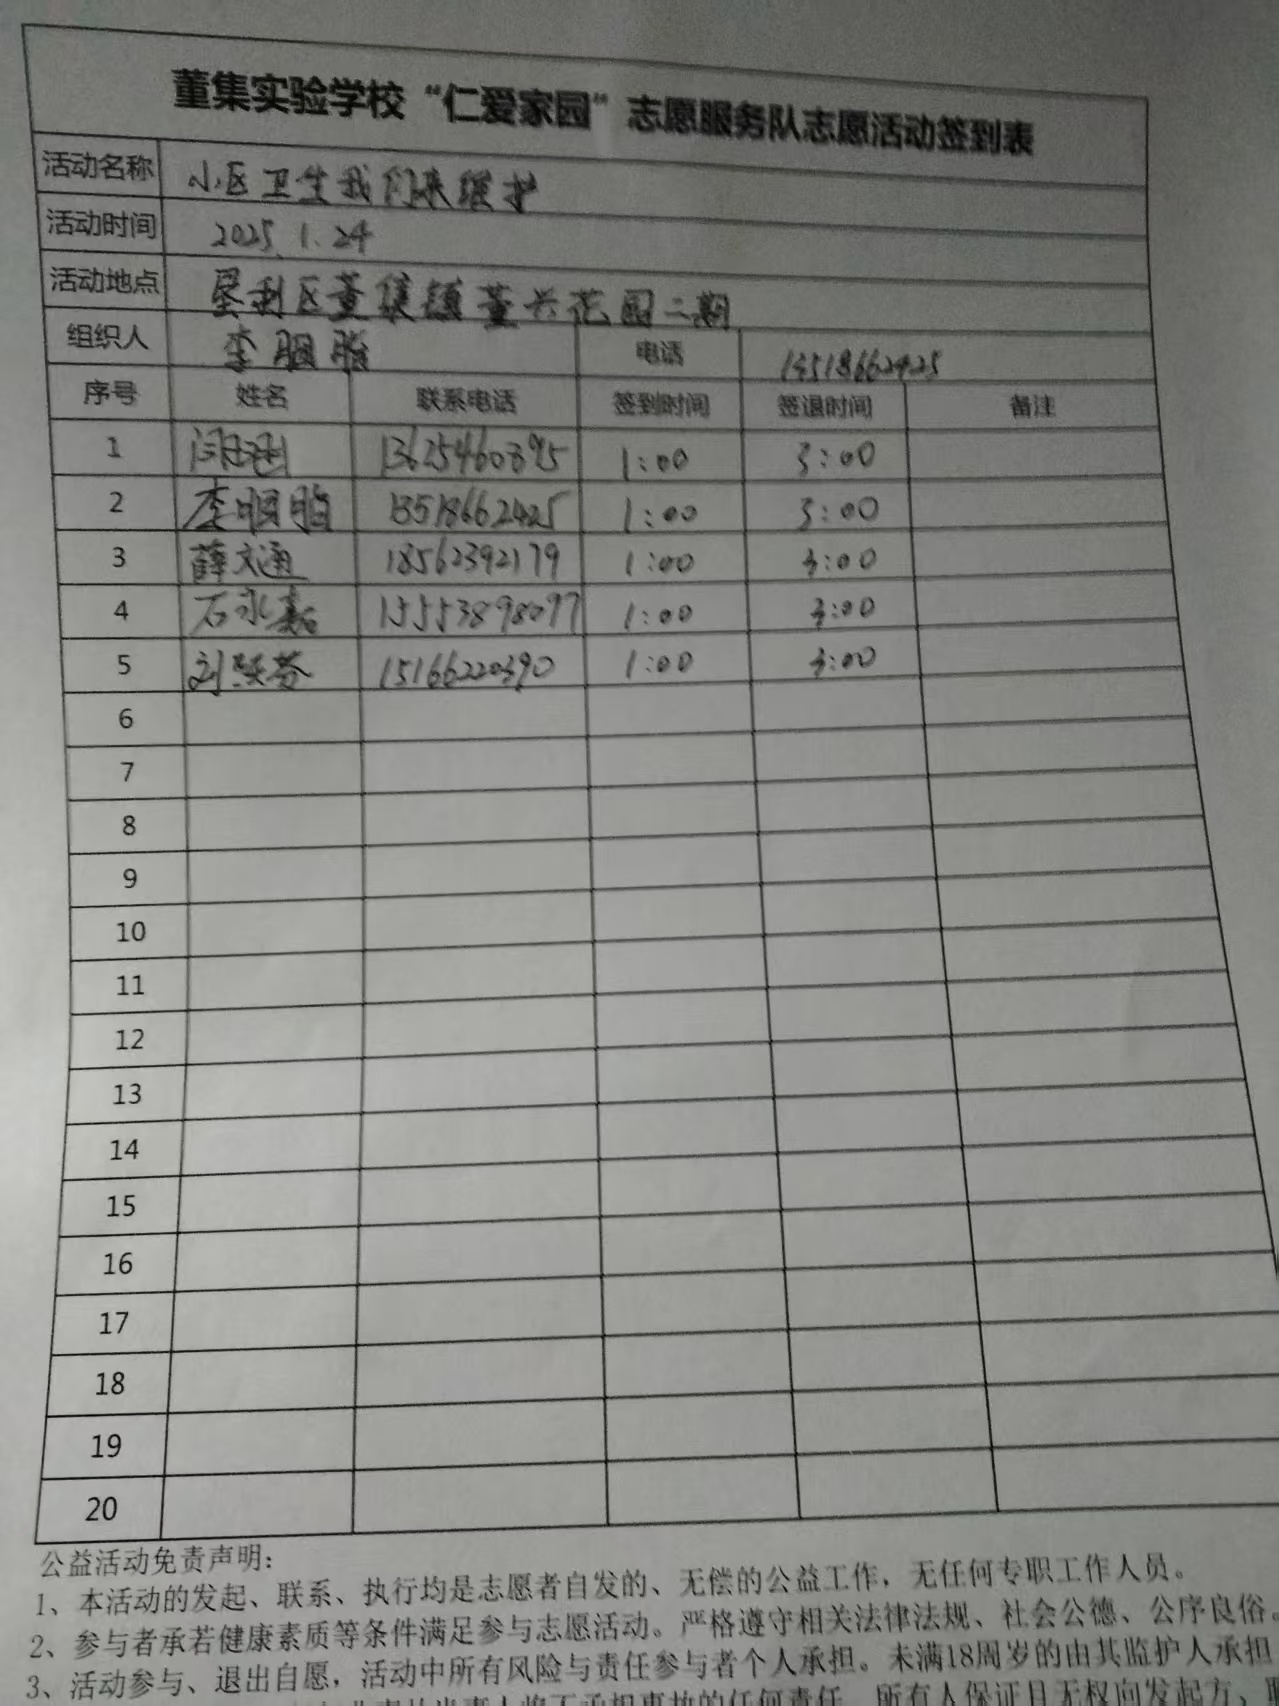 董集实验学校“仁爱家园”志愿服务队志愿活动签到表
活动名称 小区卫生我们来维护
活动时间 2025.1.24
活动地点 垦利区董集镇董兴花园二期
组织人 李胭脂 电话 13518662425
序号 姓名 联系电话 签到时间 签退时间 备注
1 13625460895 1:00 3:00
2 李胭脂 13518662425 1:00 3:00
3 薛文通 18562392179 1:00 3:00
4 石永嘉 15553898097 1:00 3:00
5 刘 芬 15166220390 1:00 3:00
6
7
8
9
10
11
12
13
14
15
16
17
18
19
20
公益活动免责声明：
1、本活动的发起、联系、执行均是志愿者自发的、无偿的公益工作，无任何专职工作人员。
2、参与者承若健康素质等条件满足参与志愿活动。严格遵守相关法律法规、社会公德、公序良俗。
3、活动参与、退出自愿，活动中所有风险与责任参与者个人承担。未满18周岁的由其监护人承担
事故的任何责任，所有人保证且无权向发起方、